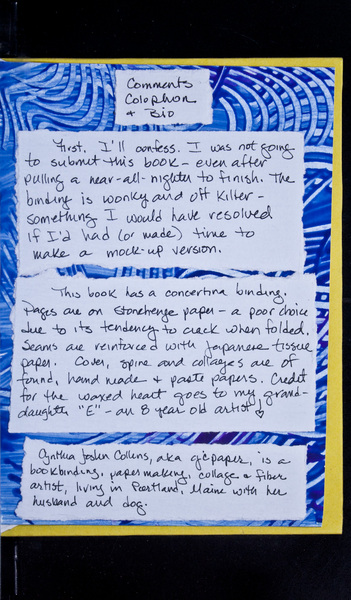 Comments
Colophon
+ Bio
First, I'll confess. I was not going
to submit this book - even after
pulling a near-all-nighter to finish. The
binding is wonky and off kilter -
something I would have resolved
if I'd had (or made) time to
make a mock-up version.
This book has a concertina binding.
Pages are on Stonehenge paper - a poor choice
due to its tendency to crack when folded.
Seams are reinforced with Japanese tissue
paper. Cover, spine and collages are of
found, hand made + paste papers. Credit
for the waxed heart goes to my grand-
daughter "E" - an 8 year old artist ♡
Cynthia Joslin Collins, aka cjcpaper, is a
bookbinding, papermaking, collage + fiber
artist, living in Portland, Maine with her
husband and dog.